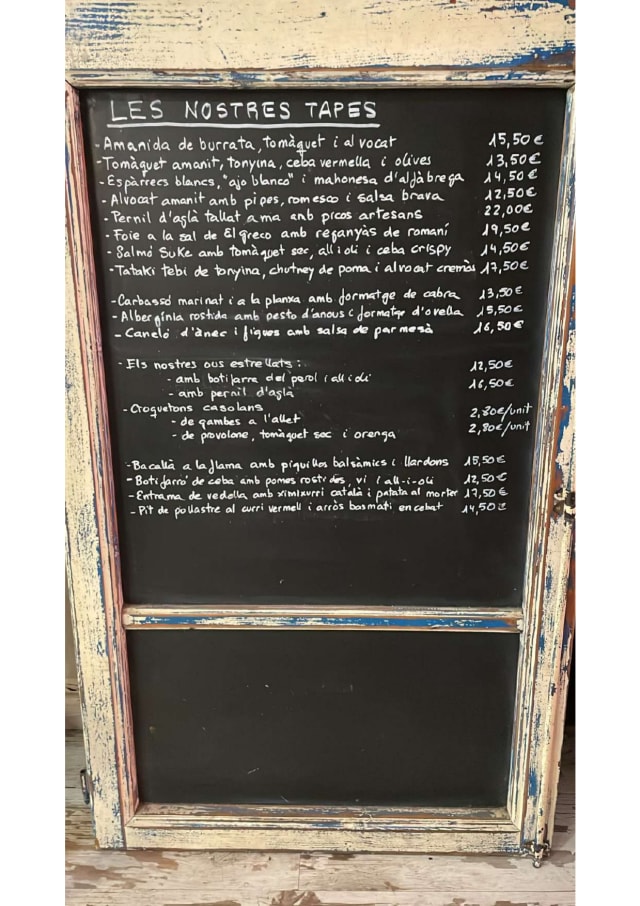 LES NOSTRES TAPES
- Amanida de burrata, tomàquet i alvocat 15,50€
- Tomàquet amanit, tonyina, ceba vermella i olives 13,50€
- Espàrrecs blancs, "ajo blanco" i mahonesa d'aljàbrega 14,50€
- Alvocat amanit amb pipes, romesco i salsa brava 12,50€
- Pernil d'aglà tallat a ma amb picos artesans 22,00€
- Foie a la sal de El greco amb reganyàs de romaní 19,50€
- Salmó Suke amb tomàquet sec, all i oli i ceba crispy 14,50€
- Tataki tebi de tonyina, chutney de poma i alvocat cremós 17,50€
- Carbassó marinat i a la planxa amb formatge de cabra 13,50€
- Albergínia rostida amb pesto d'anous i formatge d'ovella 15,50€
- Caneló d'ànec i figues amb salsa de parmesà 16,50€
- Els nostres ous estrellats:
- amb botifarra del perol i all i oli 12,50€
- amb pernil d'aglà 16,50€
- Croquetons casolans
- de gambes a l'allet 2,80€/unit
- de provolone, tomàquet sec i orenga 2,80€/unit
- Bacallà a la flama amb piquillos balsàmics i llardons 15,50€
- Botifarró de ceba amb pomes rostides, vi i all-i-oli 12,50€
- Entrama de vedella amb ximixurri català i patata al morter 17,50€
- Pit de pollastre al curri vermell i arròs basmati encebat 14,50€